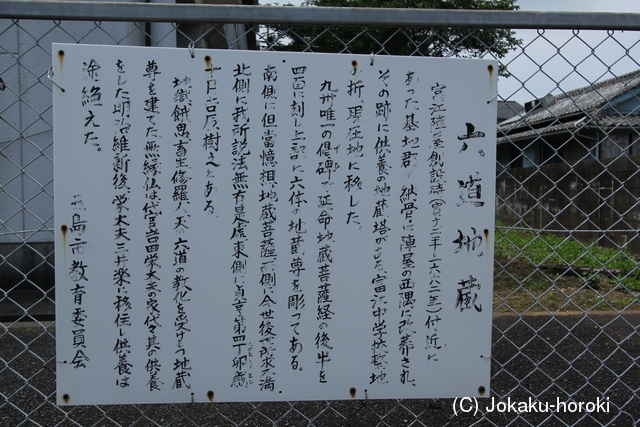 六道地蔵
富江陣屋創設時(寛文二年一六六二年)付近に
あった墓地群の納骨は陣屋の西隅に改葬され、
その跡に供養の地蔵塔がでた。富江中学校敷地
の折現在地に移した。
九州唯一の偈碑で延命地蔵菩薩経の後半を
四面に刻し上部に六体の地蔵尊を彫ってある。
南側に但當憶想、地蔵菩薩、西側に今世後世所求満、
北側に我所説法無有是虚東側に貞享第四丁卯歳
十月吉辰、樹之とある。
地獄、餓鬼、畜生、修羅、人、天の六道の教化を受けもつ地蔵
尊を建てた。無縁仏は宮古田栄太夫の先代が墓の供養
をした明治維新後、栄太夫三井楽に移住、供養は
途絶えた。
五島市教育委員会
(C) Jokaku-horoki